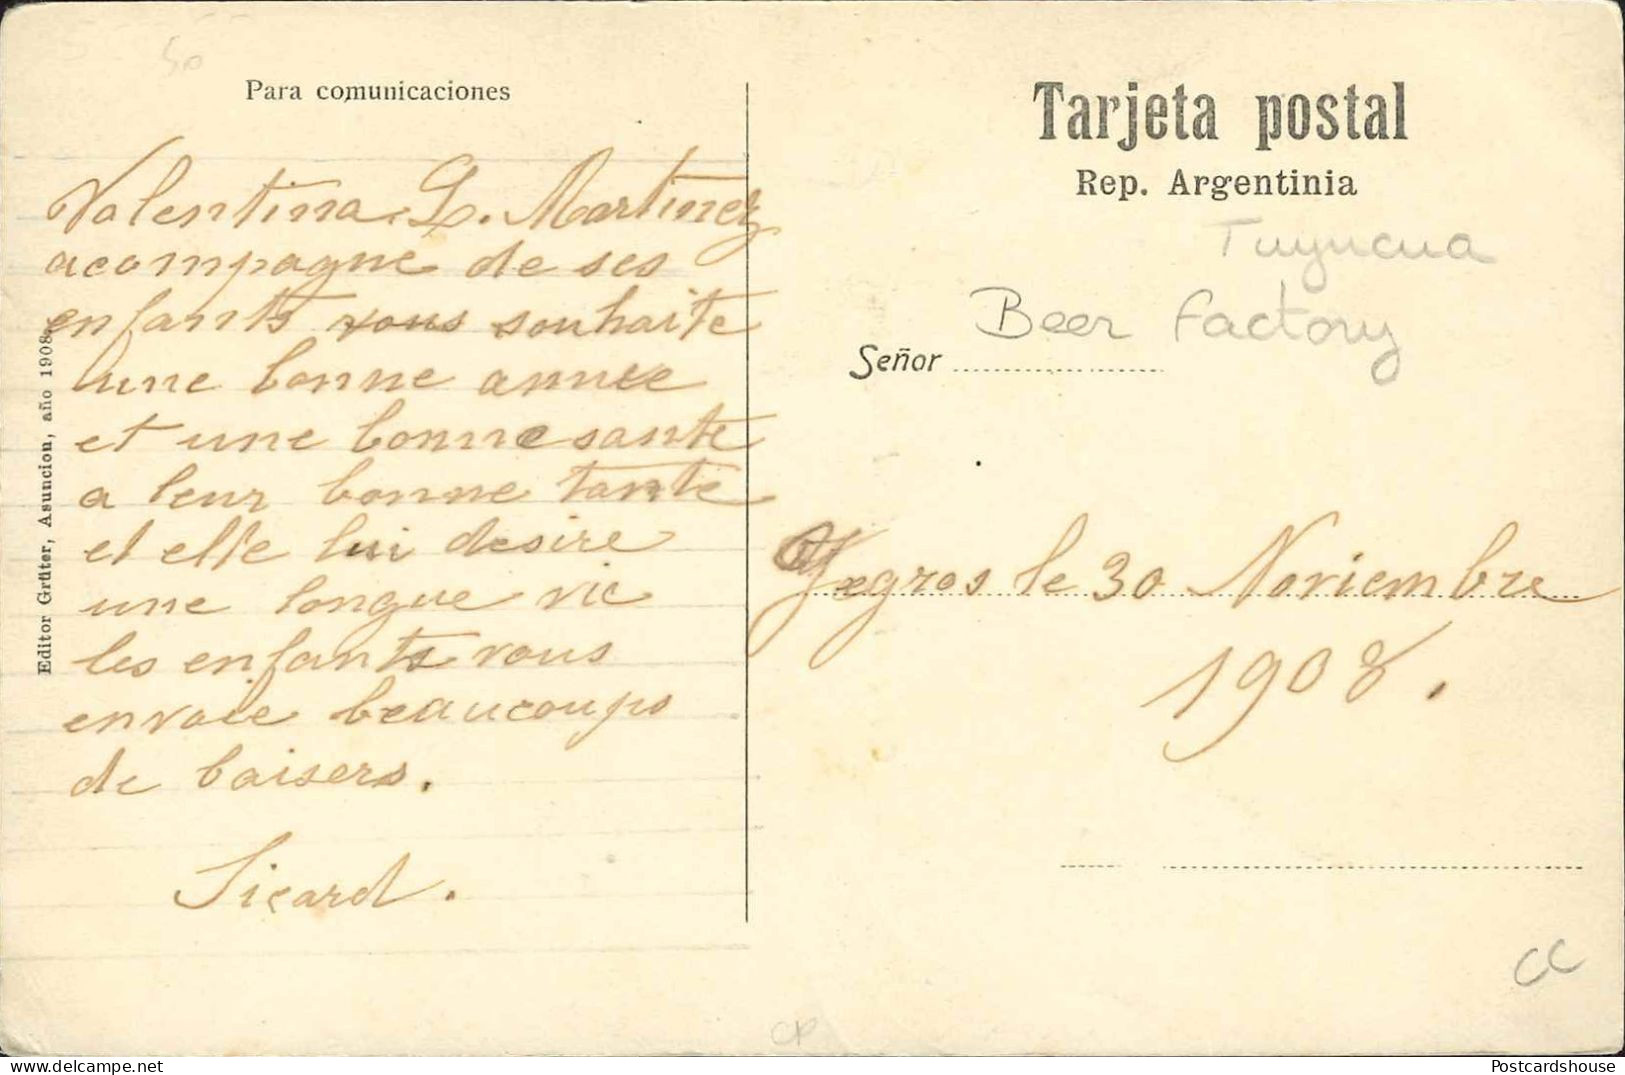 50
Para comunicaciones
Valentina L. Martinez
acompagne de ses
enfants vous souhaite
une bonne annee
et une bonne sante
a leur bonne tante
et elle lui desire
une longue vie
les enfants vous
envoie beaucoups
de baisers.
Sicard.
Editor Grüter, Asuncion, año 1908.
Tarjeta postal
Rep. Argentinia
Tuyucua
Beer factory
Señor
Yegros le 30 Noviembre
1908.
CC
CP
Postcardshouse